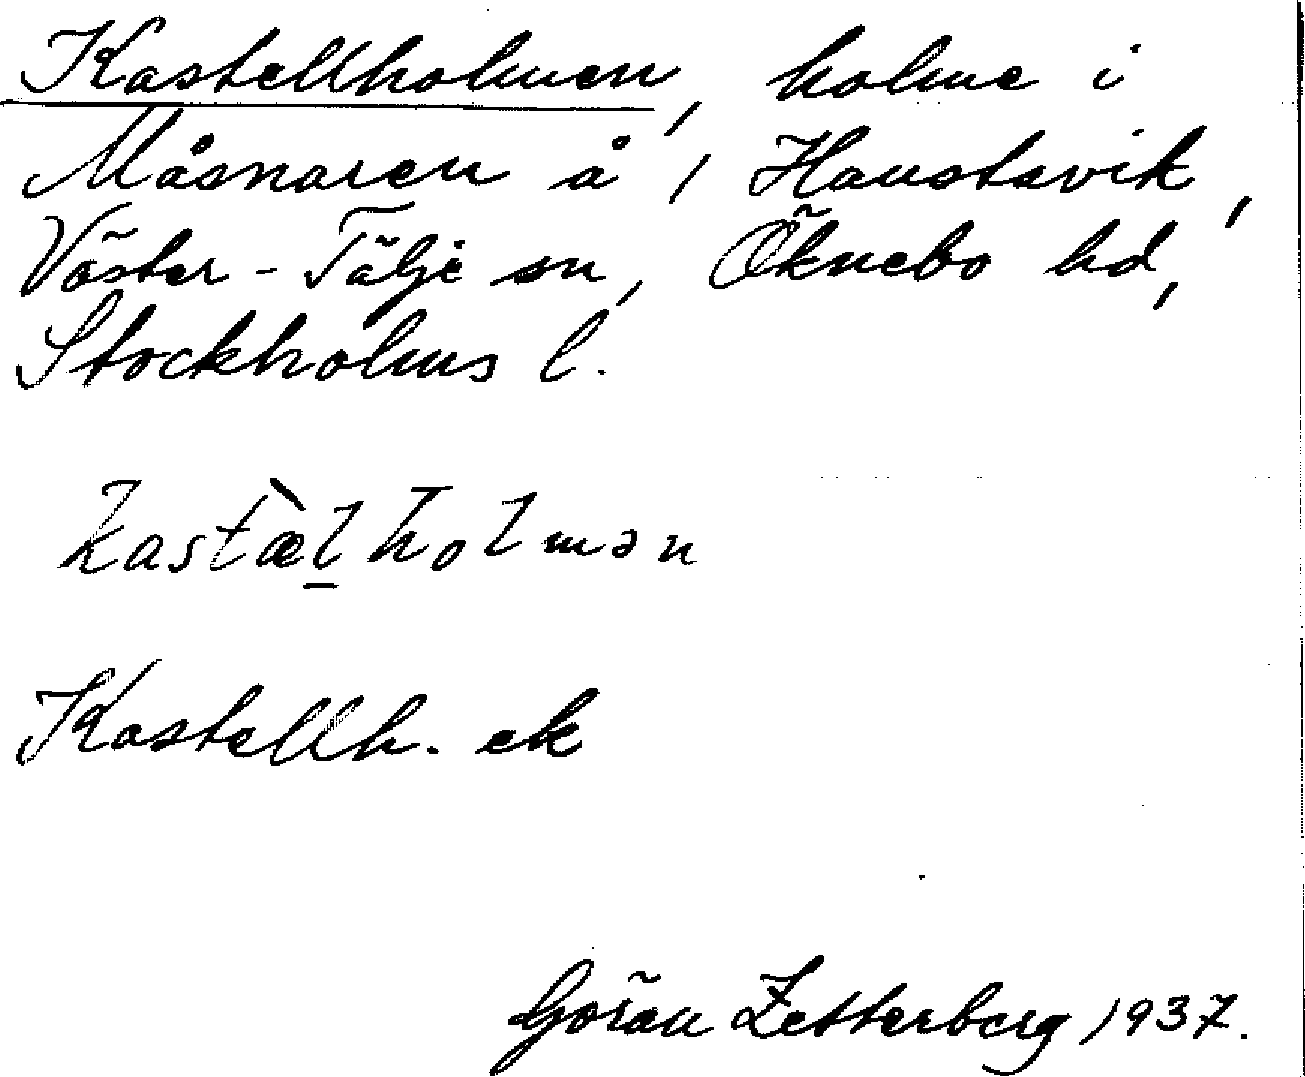 Kastellholmen, holme i
Måsnaren å, Haustsvik,
Väster-Tälje sn, Öknebo hd,
Stockholms l.
kastæ̀l̠holmən
Kastellh. ek
Göran Zetterberg 1937.